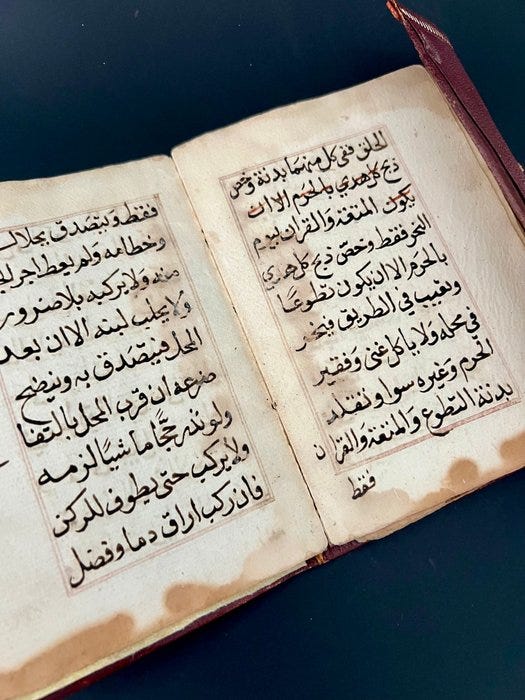 الحلق ففي كل منهما بدنة وخص
ذبح كل هدي بالحرم الا ان
يكون المتعة والقران بيوم
النحر فقط وخصّ ذبح كل هدي
بالحرم الا ان يكون تطوعًا
وتعيب في الطريق فينحر
في محله ولا ياكل غني وفقير
الحرم وغيره سوا وتقلد
بدنة التطوع والمتعة والقران
فقط
فقط ويتصدق بجلال
وخطامه ولم يعط اجر
منه ولا يركبه بلا ضرور
ولا يحلب لبنه الا ان بعد
المحل فيتصدق به وينضح
ضرعه ان قرب المحل بالنقا
ولو نذر حجًّا ماشيًا لزمه
ولا يركب حتى يطوف للركن
فان ركب اراق دما وفضل